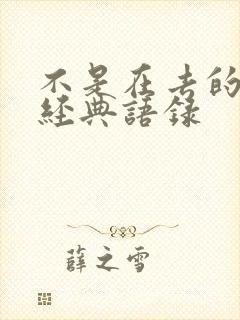 不是在去的
經典語錄
薛之雪